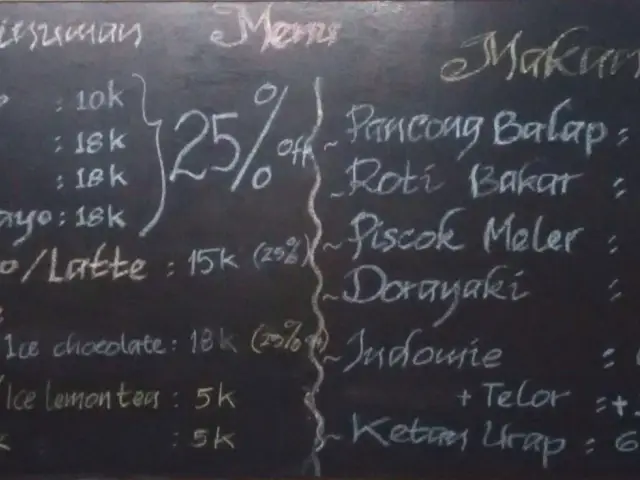 Menu
: 10k
: 18k
: 18k
ayo : 18k
25% off
o/Latte : 15k (25%)
Ice chocolate : 18k (25%)
/Ice lemon tea : 5k
k : 5k
Makan
~ Pancong Balap :
~ Roti Bakar :
~ Piscok Meler :
~ Dorayaki :
~ Indomie :
+ Telor : +
~ Ketan Urap : 6